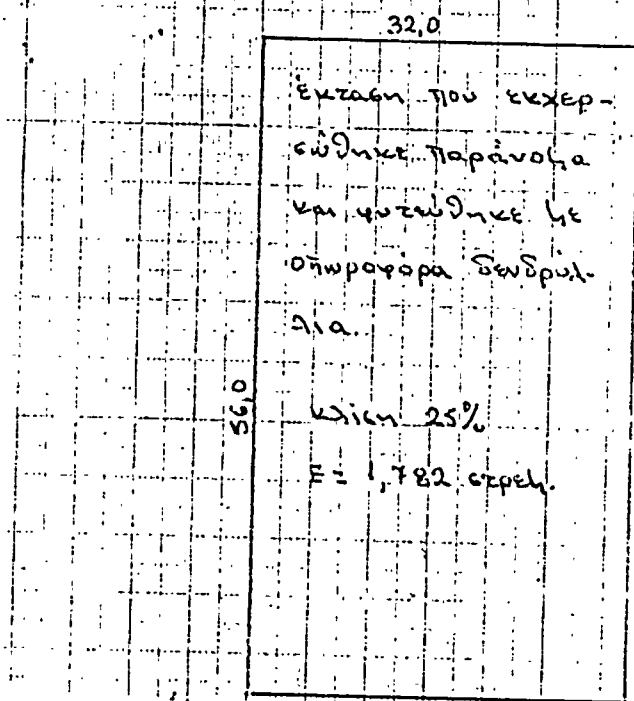 32,0
έκταση που εκχερ-
σώθηκε παράνομα
και φυτεύθηκε με
οπωροφόρα δενδρύλ-
λια.
56,0
κλίση 25%
Ε = 1,782 στρεμ.